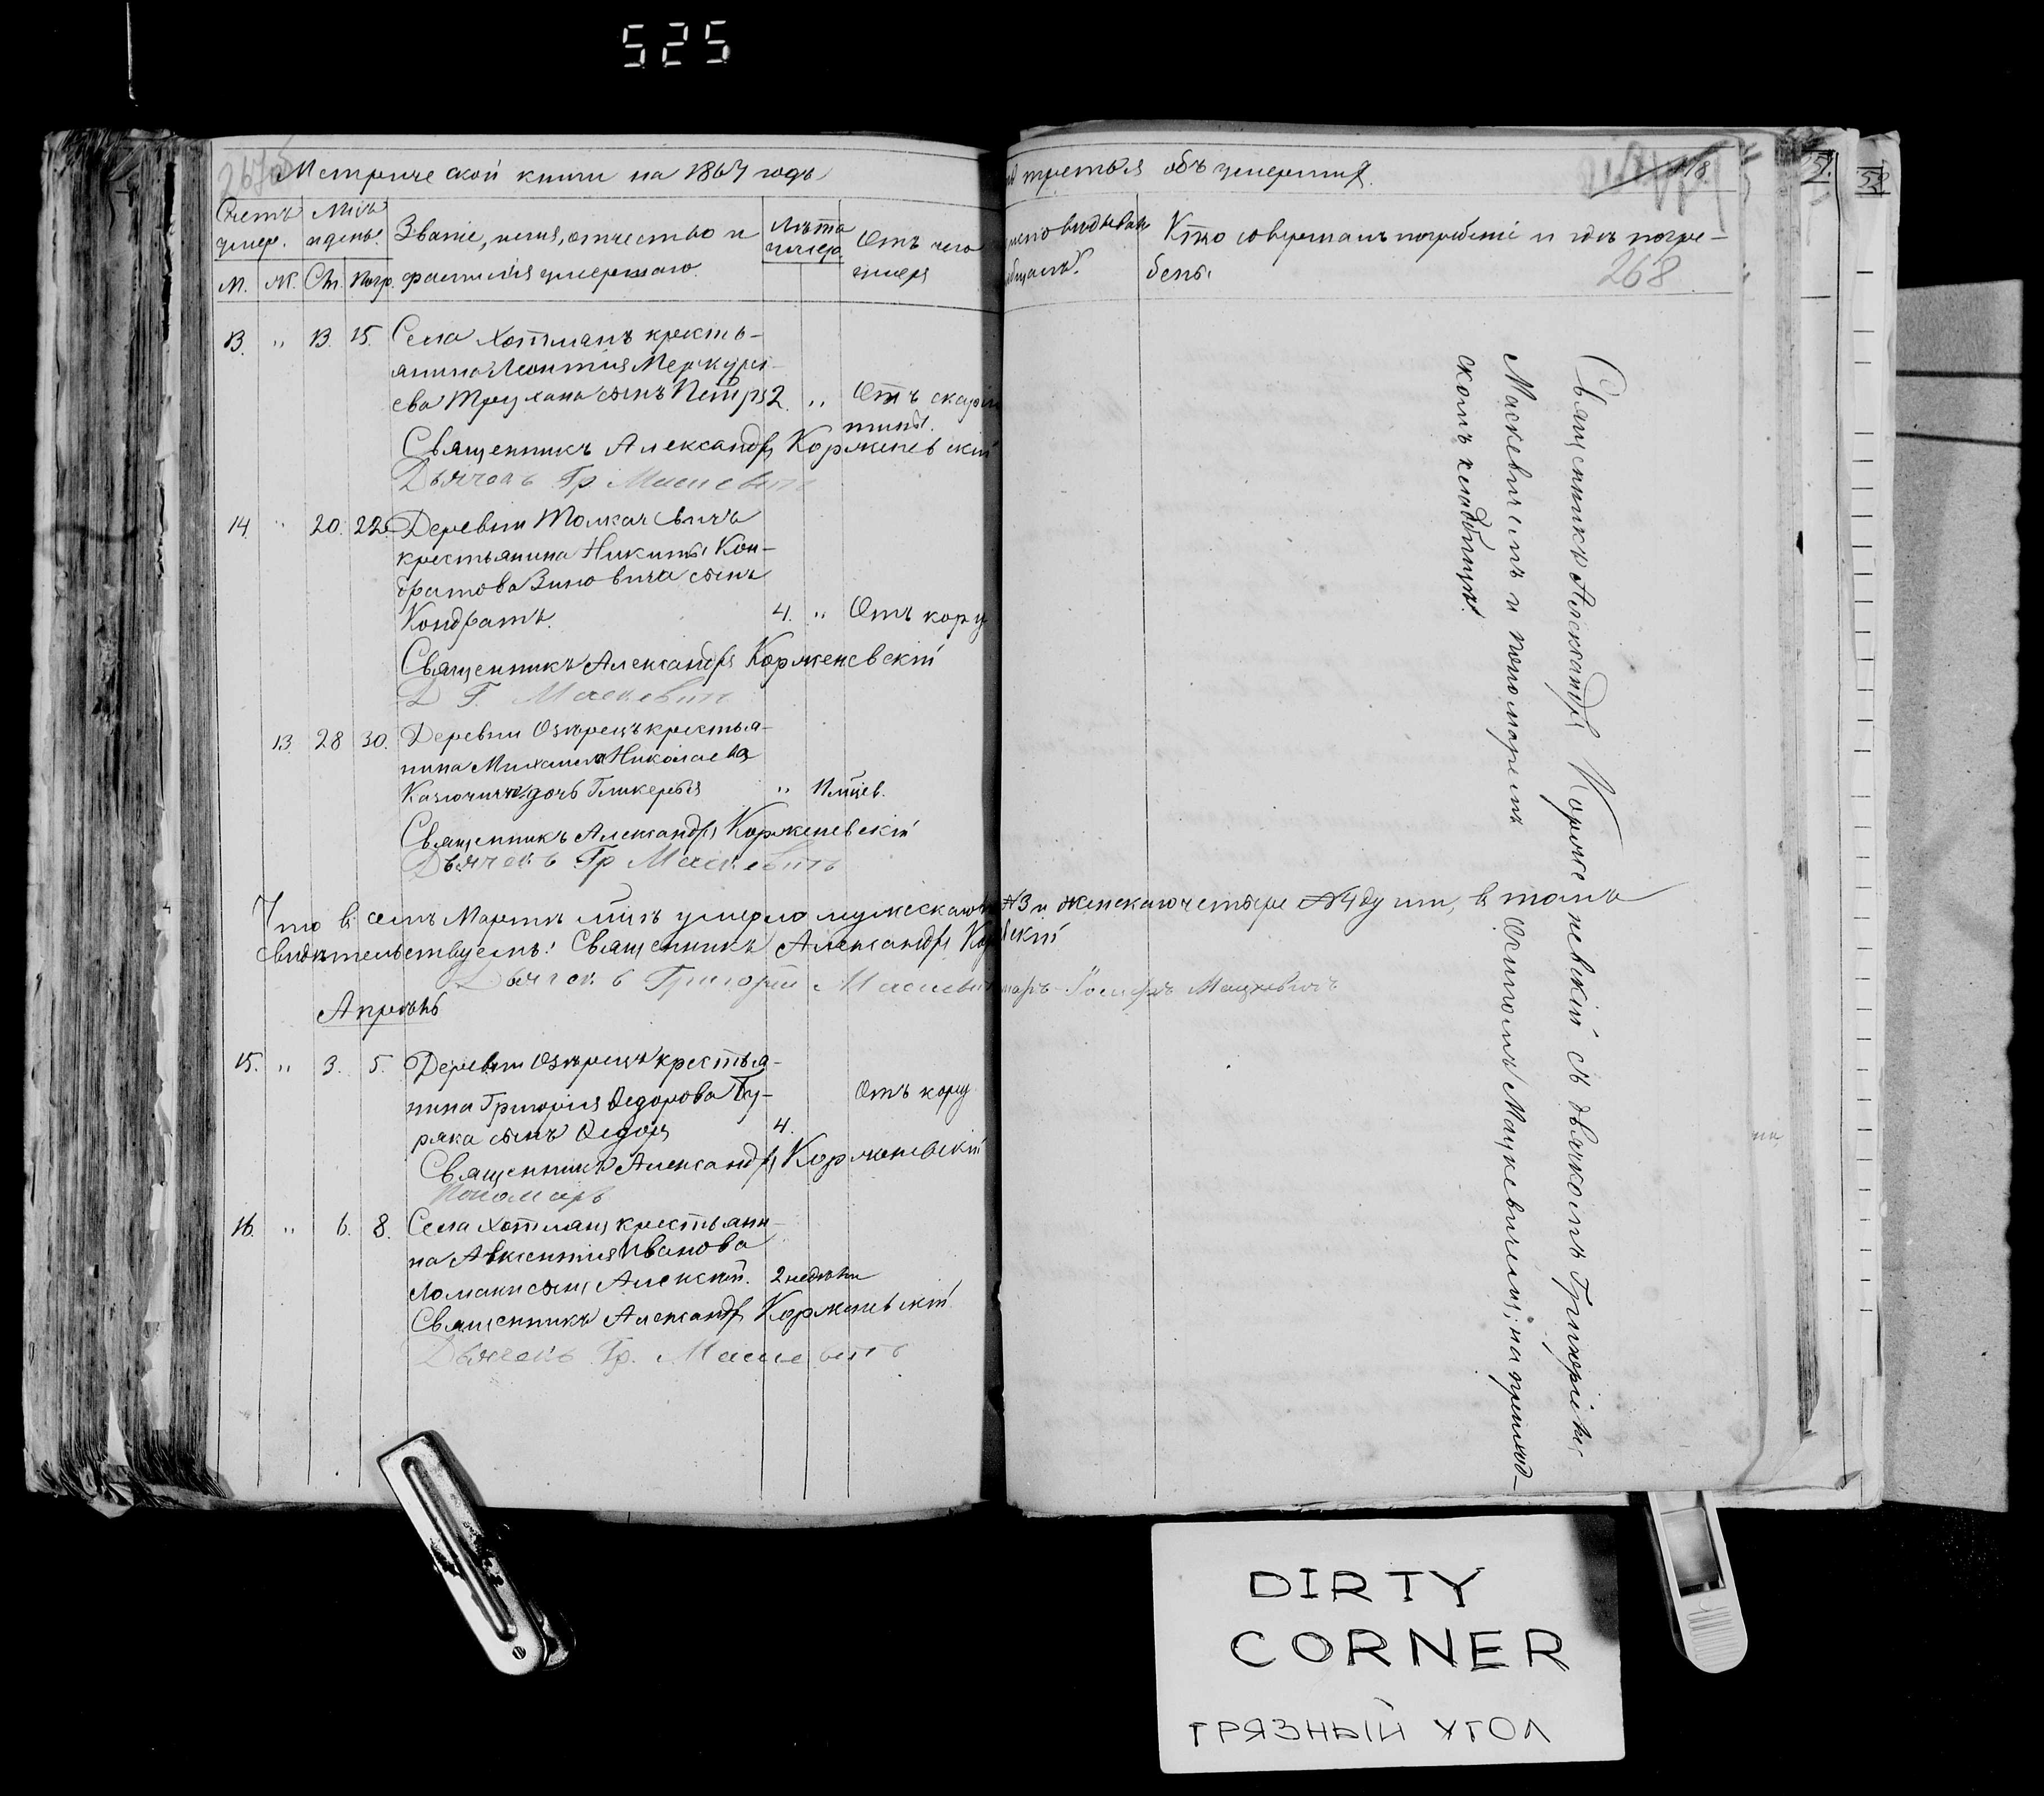 525
267об
Метрической книги на 1867 годъ
Счетъ умер.
Мѣсц. и день.
Званіе, имя, отчество и
фамилія умершаго.
Лѣта умерш.
Отъ чего
умеръ
М. Ж. См. Погр.
13. „ 13. 15. Села Хотлянъ кресть-
янина Леонтія Меркурі-
ева Трухана сынъ Петръ 2. „ Отъ скарла
тины.
Священникъ Александръ Корженевскій
Дьячекъ Гр Маскевичъ
14. „ 20. 22. Деревни Толкачевичъ
крестьянина Никиты Кон-
дратова Зиновича сынъ
Кондратъ. 4. „ Отъ кору
Священникъ Александръ Корженевскій
Д Г. Маскевичъ
13. 28 30. Деревни Озѣрецъ крестья-
нина Михаила Николаева
Казючица дочь Гликерья „ 11 мѣсев.
Священникъ Александръ Корженевскій
Дьячекъ Гр Маскевичъ
Что в семъ Мартѣ мцѣ умерло мужескаго №3 и женскаго четыре №4 души, в томъ
свидѣтельствуемъ: Священникъ Александръ Кор скій
Дьячекъ Григорій Маскевич марь Іосифъ Мацкевичъ
Апрѣль
15. „ 3. 5. Деревни Озѣрецъ крестья-
нина Григорія Ѳедорова Бу-
ряка сынъ Ѳедоръ 4. Отъ кору
Священникъ Александръ Корженевскій
Пономарь
16. „ 6. 8. Села Хотлянъ крестьяни-
на Авксентія Иванова
Ломаки сынъ Алексѣй. 2 недѣли
Священникъ Александръ Корженевскій
Дьячекъ Гр. Маскевичъ
третья объ умершихъ.
118
исповѣдывалъ
общалъ?
Кто совершалъ погребеніе и гдѣ погре-
бены
268
Священникъ Александръ Корженевскій съ дьячкомъ Григоріемъ
Маскевичемъ и пономаремъ Осипомъ Мацкевичемъ; на приход-
скомъ кладбищѣ.
52
DIRTY
CORNER
ГРЯЗНЫЙ УГОЛ